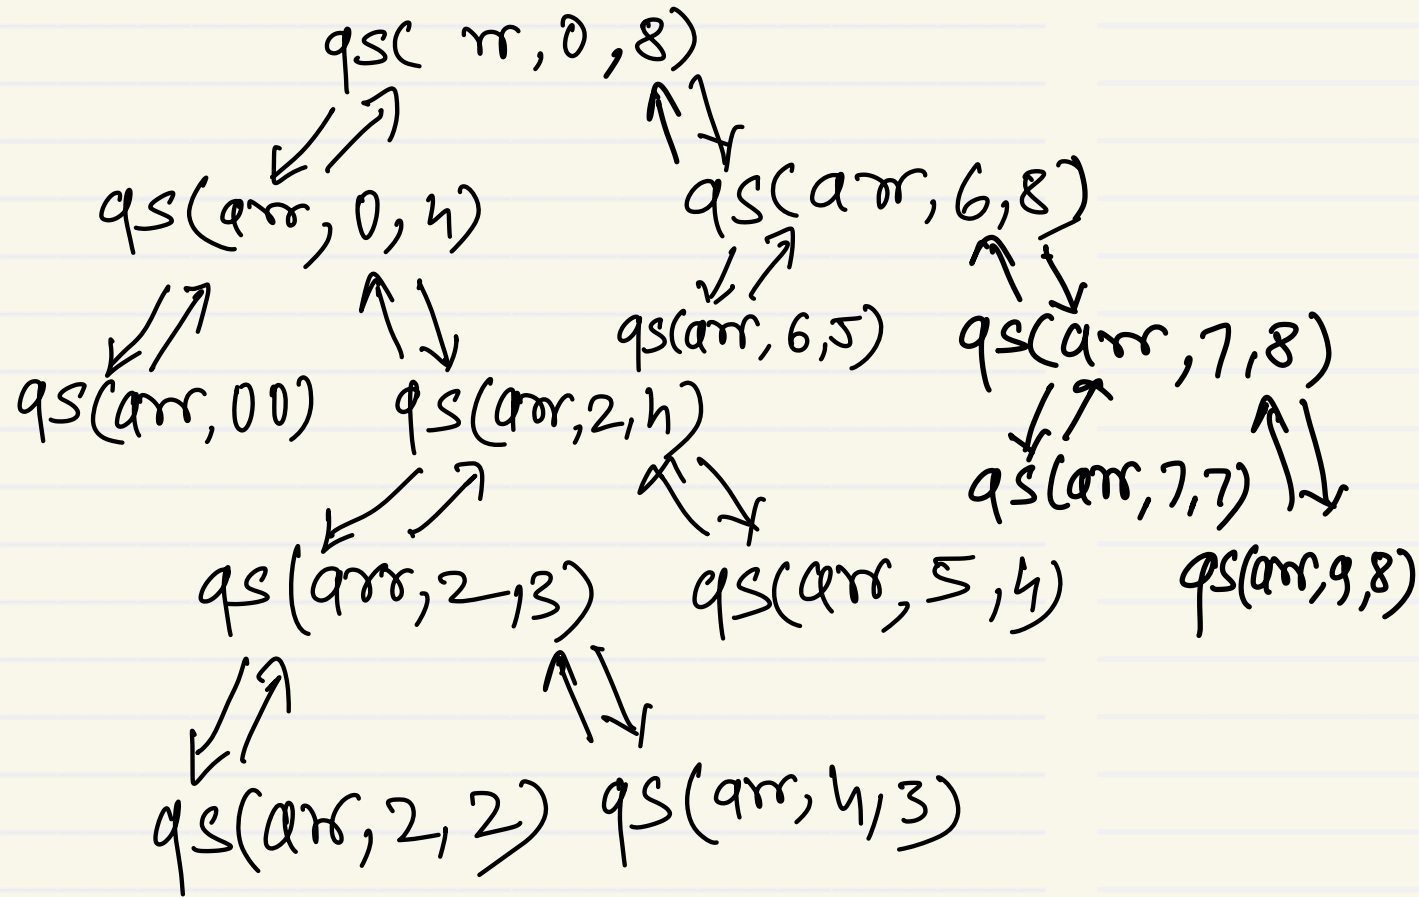 qs( rr, 0, 8)
qs(arr, 0, 4) qs(arr, 6, 8)
qs(arr, 6, 5) qs(arr, 7, 8)
qs(arr, 0 0) qs(arr, 2, 4)
qs(arr, 7, 7)
qs(arr, 2, 3) qs(arr, 5, 4) qs(arr, 9, 8)
qs(arr, 2, 2) qs(arr, 4, 3)